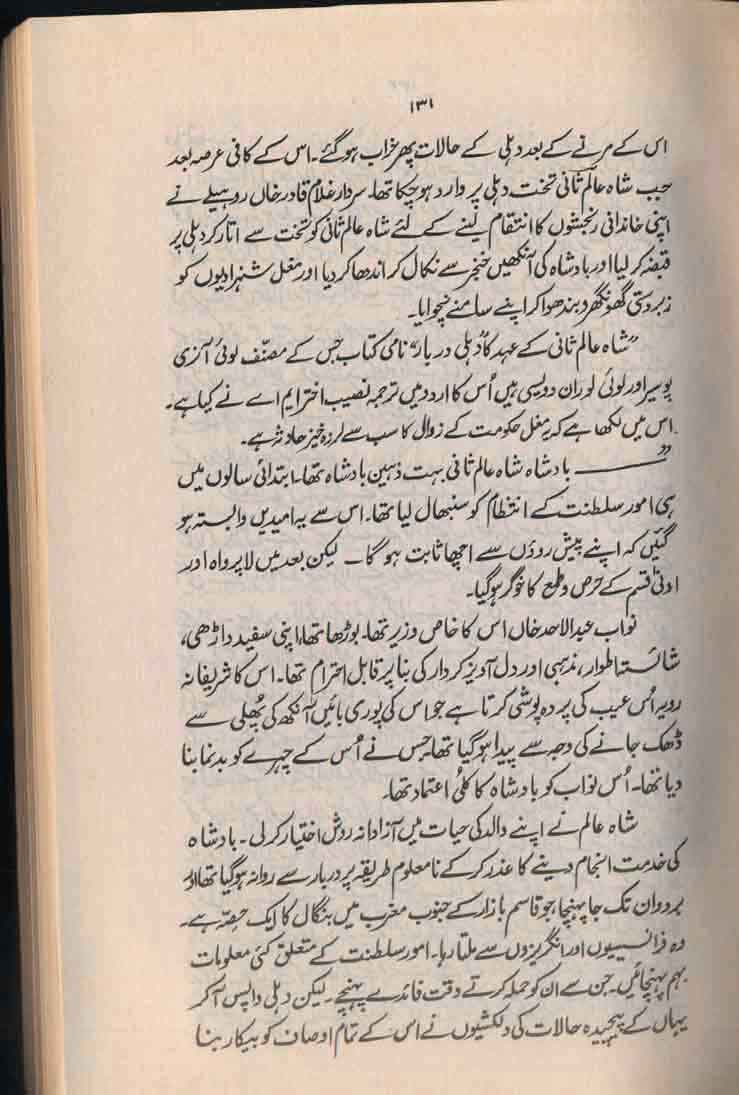 ۱۳۱
اس کے مرنے کے بعد دہلی کے حالات پھر خراب ہو گئے۔ اس کے کافی عرصہ بعد
جب شاہ عالم ثانی تخت دہلی پر وارد ہو چکا تھا۔ سردار غلام قادر خاں روہیلے نے
اپنی خاندانی رنجشوں کا انتقام لینے کے لئے شاہ عالم ثانی کو تخت سے اتار کر دہلی پر
قبضہ کر لیا اور بادشاہ کی آنکھیں خنجر سے نکال کر اندھا کر دیا اور مغل شہزادیوں کو
زبردستی گھونگھرو بندھوا کر اپنے سامنے نچوایا۔
"شاہ عالم ثانی کے عہد کا دہلی دربار" نامی کتاب جس کے مصنف لوئی آنزی
پوسیر اور لوئی لوران دویسی ہیں اُس کا اردو میں ترجمہ نصیب اختر ایم اے نے کیا ہے۔
اس میں لکھا ہے کہ یہ مغل حکومت کے زوال کا سب سے لرزہ خیز حادثہ ہے۔
"——— بادشاہ شاہ عالم ثانی بہت ذہین بادشاہ تھا۔ ابتدائی سالوں میں
ہی امور سلطنت کے انتظام کو سنبھال لیا تھا۔ اس سے یہ امیدیں وابستہ ہو
گئیں کہ اپنے پیش روؤں سے اچھا ثابت ہو گا۔ لیکن بعد میں لاپرواہ اور
ادنیٰ قسم کے حرص و طمع کا خوگر ہو گیا۔
نواب عبدالاحد خاں اس کا خاص وزیر تھا۔ بوڑھا تھا، اپنی سفید داڑھی،
شائستہ اطوار، مذہبی اور دل آویز کردار کی بنا پر قابل احترام تھا۔ اس کا شریفانہ
رویہ اُس عیب کی پردہ پوشی کرتا ہے جو اس کی پوری بائیں آنکھ کی پھلی سے
ڈھک جانے کی وجہ سے پیدا ہو گیا تھا، جس نے اُس کے چہرے کو بدنما بنا
دیا تھا۔ اُس نواب کو بادشاہ کا کلی اعتماد تھا۔
شاہ عالم نے اپنے والد کی حیات میں آزادانہ روش اختیار کر لی۔ بادشاہ
کی خدمت انجام دینے کا عذر کر کے نامعلوم طریقہ پر دربار سے روانہ ہو گیا تھا اور
بردوان تک جا پہنچا، جو قاسم بازار کے جنوب مغرب میں بنگال کا ایک حصہ ہے۔
وہ فرانسیسیوں اور انگریزوں سے ملتا رہا۔ امور سلطنت کے متعلق کئی معلومات
بہم پہنچائیں۔ جن سے ان کو حملہ کرتے وقت فائدے پہنچے۔ لیکن دہلی واپس آ کر
یہاں کے پیچیدہ حالات کی دلکشیوں نے اس کے تمام اوصاف کو بیکار بنا